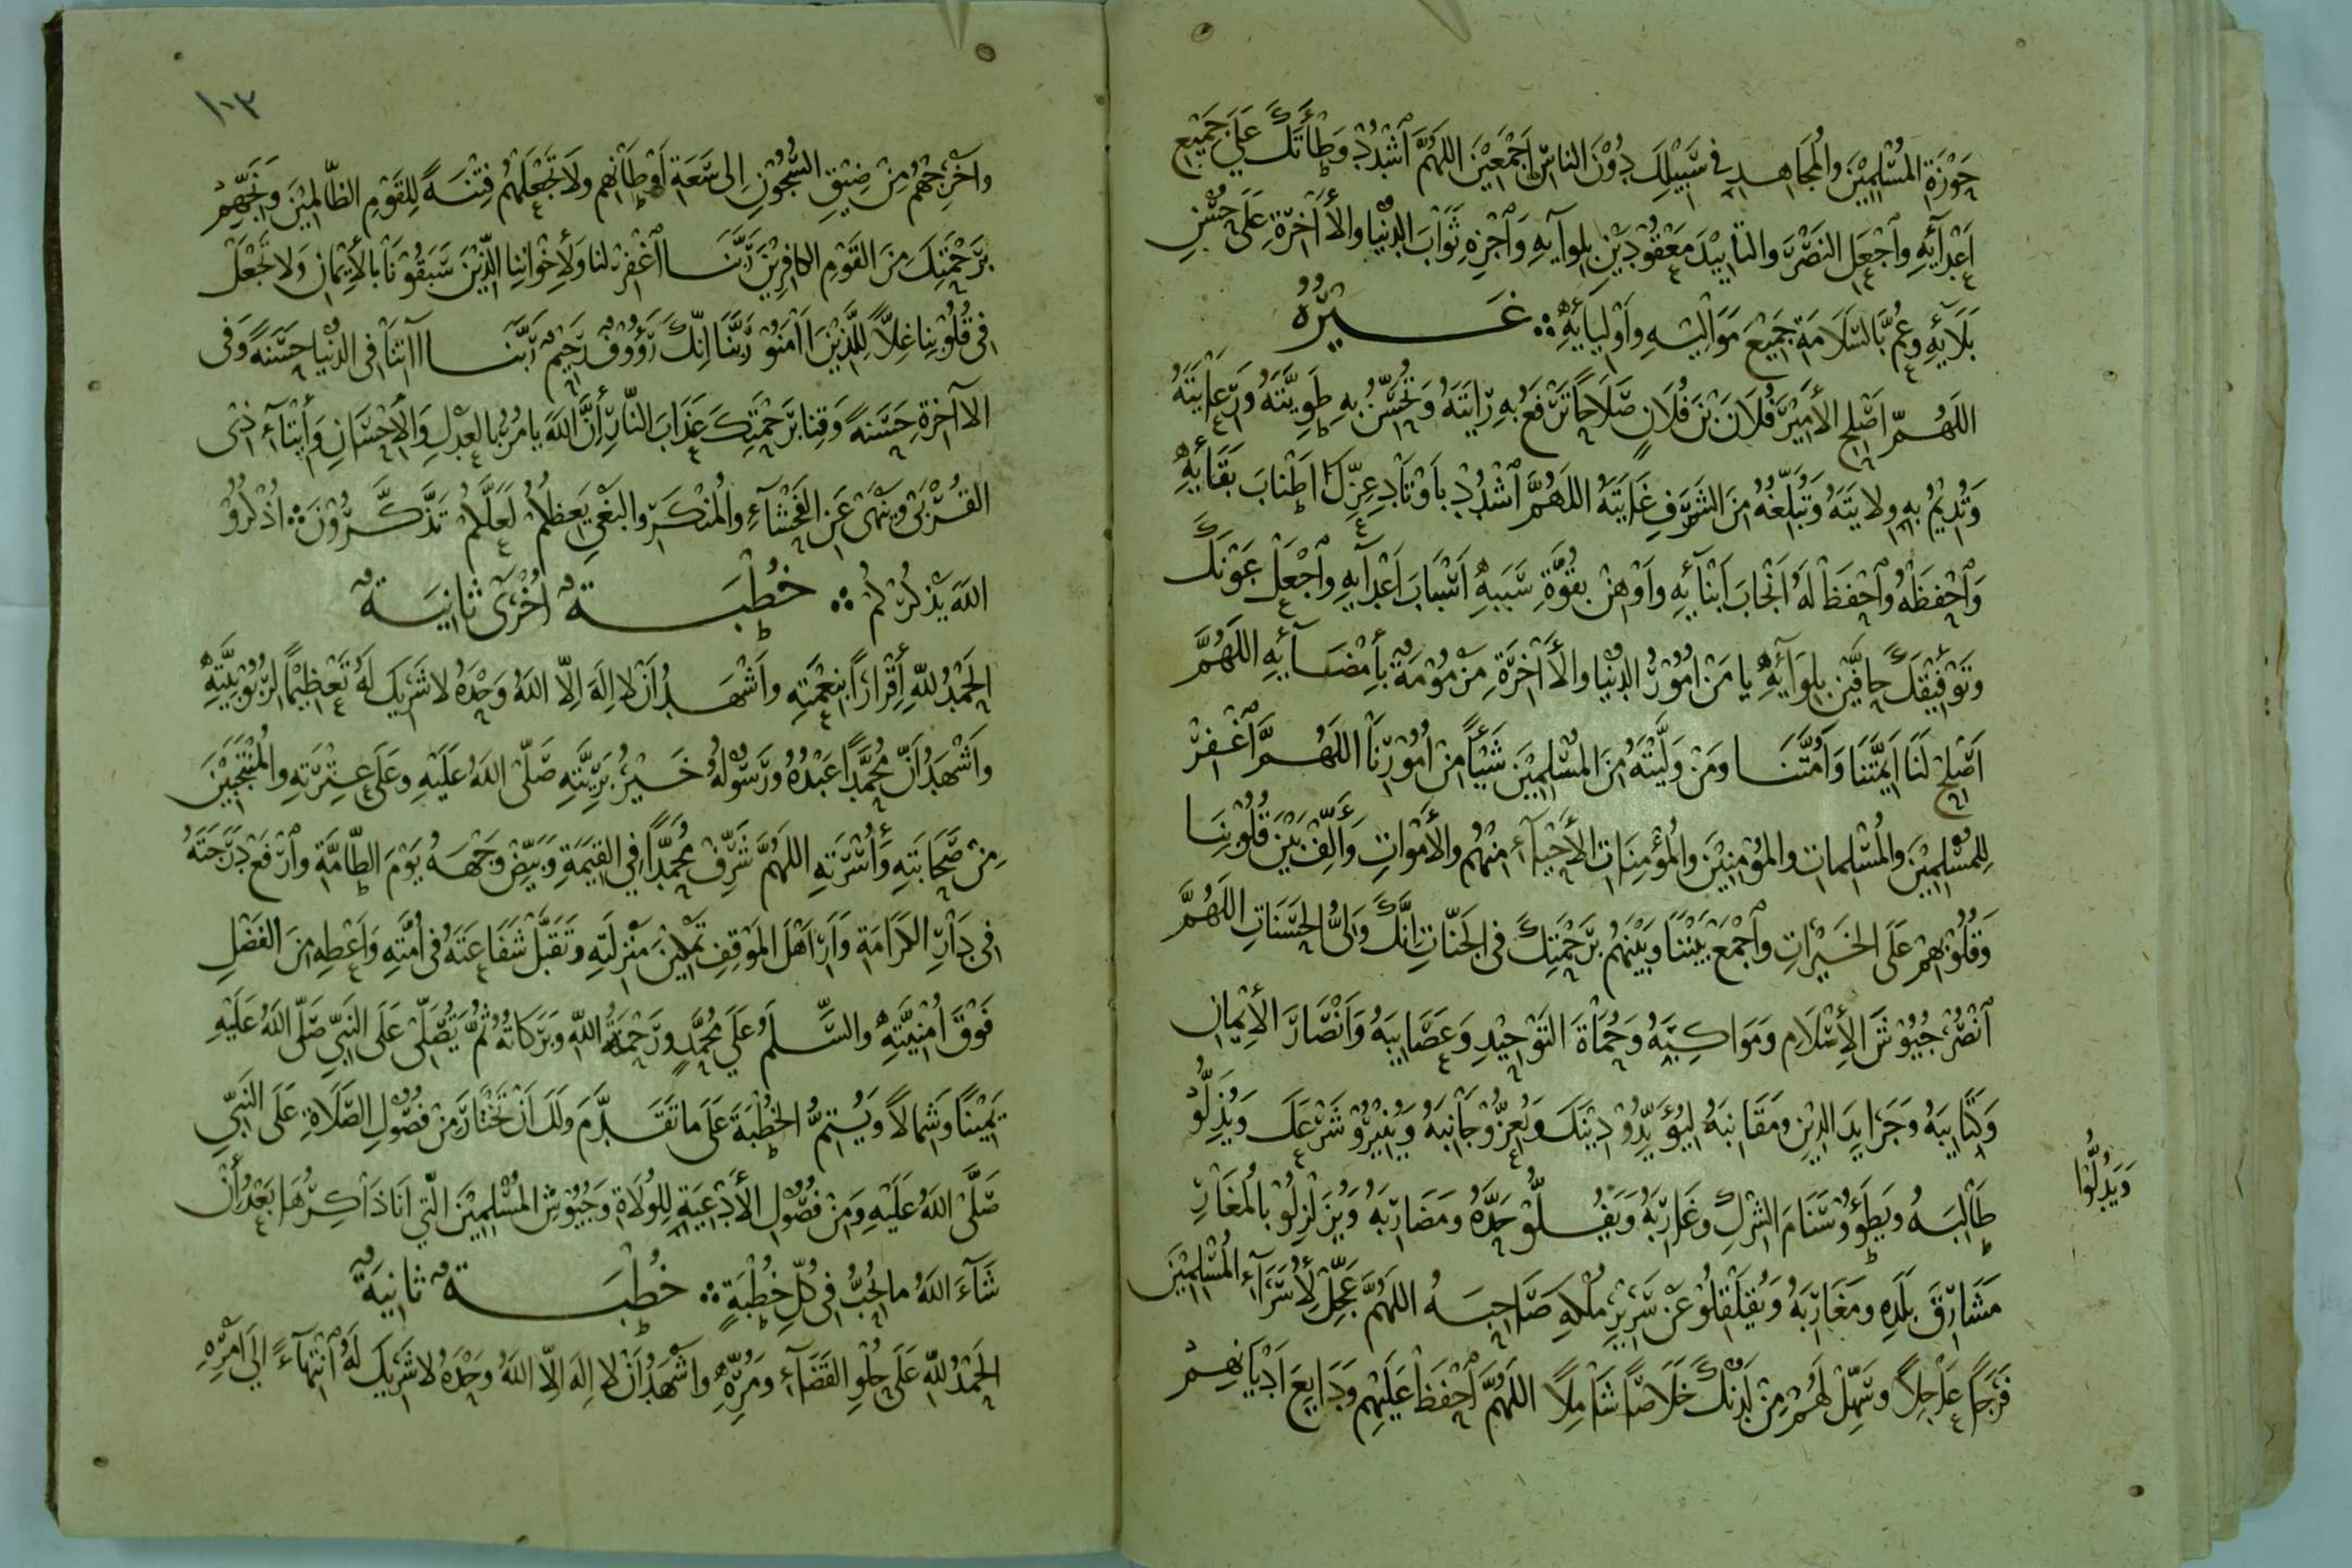 حَوْزَةِ المُسْلِمِيْنَ وَالمُجَاهِدِ فِي سَبِيْلِكَ دُوْنَ النَّاسِ اَجْمَعِيْنَ اللَّهُمَّ اشْدُدْ وَطْأَتَكَ عَلَى جَمِيْعِ
اَعْدَآئِهِ وَاجْعَلِ النَّصْرَ وَالتَّأيِيْدَ مَعْقُوْدَيْنِ بِلِوَآئِهِ وَاجْزِهِ ثَوَابَ الدُّنْيَا وَالآخِرَةِ عَلَى حُسْنِ
بَلَآئِهِ وَعُمَّ بِالسَّلَامَةِ جَمِيْعَ مَوَالِيْهِ وَاَوْلِيَآئِهِ ∴ غَيْرُهُ
اللَّهُمَّ اَصْلِحِ الأَمِيْرَ فُلَانَ بْنَ فُلَانٍ صَلَاحًا تَرْفَعُ بِهِ رَايَتَهُ وَتُحَسِّنُ بِهِ طَوِيَّتَهُ وَرِعَايَتَهُ
وَتُدِيْمُ بِهِ وِلَايَتَهُ وَتُبَلِّغُهُ مِنَ الشَّرَفِ غَايَتَهُ اللَّهُمَّ اشْدُدْ بِاَوْتَادِ عِزِّكَ اَطْنَابَ بَقَآئِهِ
وَاحْفَظْهُ وَاحْفَظْ لَهُ اَنْجَابَ اَبْنَآئِهِ وَاَوْهِنْ بِقُوَّةِ سَبَبِهِ اَسْبَابَ اَعْدَآئِهِ وَاجْعَلْ عَوْنَكَ
وَتَوْفِيْقَكَ حَافِّيْنِ بِلِوَآئِهِ يَا مَنْ اُمُوْرُ الدُّنْيَا وَالآخِرَةِ مَزْمُوْمَةٌ بِأِمْضَآئِهِ اللَّهُمَّ
اَصْلِحْ لَنَا اَيِمَّتَنَا وَاُمَّتَنَا وَمَنْ وَلَّيْتَهُ مِنَ المُسْلِمِيْنَ شَيْئًا مِنْ اُمُوْرِنَا اللَّهُمَّ اغْفِرْ
لِلْمُسْلِمِيْنَ وَالمُسْلِمَاتِ وَالمُؤْمِنِيْنَ وَالمُؤْمِنَاتِ الأَحْيَآءِ مِنْهُم وَالأَمْوَاتِ وَأَلِّفْ بَيْنَ قُلُوْبِنَا
وَقُلُوْبِهِمْ عَلَى الخَيْرَاتِ وَاجْمَعْ بَيْنَنَا وَبَيْنَهُم بِرَحْمَتِكَ فِي الجَنَّاتِ اِنَّكَ وَلِيُّ الحَسَنَاتِ اللَّهُمَّ
انْصُرْ جُيُوْشَ الأِسْلَامِ وَمَوَاكِبَهُ وَحُمَاةَ التَّوْحِيْدِ وَعَصَايِبَهُ وَاَنْصَارَ الأِيْمَانِ
وَكَتَايِبَهُ وَجَرَايِدَ الدِّيْنِ وَمَقَانِبَهُ لِيُؤَيِّدُوْ دِيْنَكَ وَيُعِزُّوْ جَانِبَهُ وَيُنِيْرُوْ شَرْعَكَ وَيُذِلُّوْ
طَالِبَهُ وَيَطَؤُوْ سَنَامَ الشِّرْكِ وَغَارِبَهُ وَيَفُلُّوْ حَدَّهُ وَمَضَارِبَهُ وَيُزَلْزِلُوْ بِالمُغَارِ
وَيُدِلُّوا
مَشَارِقَ بَلَدِهِ وَمَغَارِبَهُ وَيُقَلْقِلُوْ عَنْ سَرِيْرِ مُلْكِهِ صَاحِبَهُ اللَّهُمَّ عَجِّلْ لِأُسَرَآءِ المُسْلِمِيْنَ
فَرَجًا عَاجِلًا وَسَهِّلْ لَهُمْ مِنْ لَدُنْكَ خَلَاصًا شَامِلًا اللَّهُمَّ احْفَظْ عَلَيْهِم وَدَايِعَ اَدْيَانِهِمْ
١٠٣
وَاَخْرِجْهُم مِنْ ضِيْقِ السُّجُوْنِ اِلَى سَعَةِ اَوْطَانِهِم وَلَا تَجْعَلْهُم فِتْنَةً لِلْقَوْمِ الظَّالِمِيْنَ وَنَجِّهِمْ
بِرَحْمَتِكَ مِنَ القَوْمِ الكَافِرِيْنَ رَبَّنَا اغْفِرْ لَنَا وَلِأِخْوَانِنَا الَّذِيْنَ سَبَقُوْنَا بِالأِيْمَانِ وَلَا تَجْعَلْ
فِي قُلُوْبِنَا غِلًّا لِلَّذِيْنَ اٰمَنُوْ رَبَّنَا اِنَّكَ رَؤُوْفٌ رَحِيْمٌ رَبَّنَا اٰتِنَا فِي الدُّنْيَا حَسَنَةً وَفِي
الآخِرَةِ حَسَنَةً وَقِنَا بِرَحْمَتِكَ عَذَابَ النَّارِ أِنَّ اللَّهَ يَامُرُ بِالعَدْلِ وَالأِحْسَانِ وَأِيْتَآءِ ذِي
القُرْبَى وَيَنْهَى عَنِ الفَحْشَآءِ وَالمُنْكَرِ وَالبَغْيِ يَعِظُكُمْ لَعَلَّكُمْ تَذَّكَّرُوْنَ ∴ اُذْكُرُوْ
اللَّهَ يَذْكُرْكُمْ ∴ خُطْبَةٌ اُخْرَى ثَانِيَةٌ
الحَمْدُ لِلَّهِ أِقْرَارًا بِنِعْمَتِهِ وَاَشْهَدُ اَنْ لَا اِلَهَ اِلَّا اللَّهُ وَحْدَهُ لَا شَرِيْكَ لَهُ تَعْظِيْمًا لِرُبُوْبِيَّتِهِ
وَاَشْهَدُ اَنَّ مُحَمَّدًا عَبْدُهُ وَرَسُوْلُهُ خَيْرُ بَرِيَّتِهِ صَلَّى اللَّهُ عَلَيْهِ وَعَلَى عِتْرَتِهِ وَالمُنْتَجَبِيْنَ
مِنْ صَحَابَتِهِ وَأُسْرَتِهِ اللَّهُمَّ شَرِّفْ مُحَمَّدًا فِي القِيَمَةِ وَبَيِّضْ وَجْهَهُ يَوْمَ الطَّامَّةِ وَارْفَعْ دَرَجَتَهُ
فِي دَارِ الكَرَامَةِ وَاَرِ اَهْلَ المَوْقِفِ تَمْكِيْنَ مَنْزِلَتِهِ وَتَقَبَّلْ شَفَاعَتَهُ فِي اُمَّتِهِ وَاَعْطِهِ مِنَ الفَضْلِ
فَوْقَ اُمْنِيَّتِهِ وَالسَّلَمُ عَلَى مُحَمَّدٍ وَرَحْمَةُ اللَّهِ وَبَرَكَاتُهُ ثُمَّ يُصَلِّي عَلَى النَّبِيِّ صَلَّى اللَّهُ عَلَيْهِ
يَمِيْنًا وَشِمَالًا وَيُتِمُّ الخُطْبَةَ عَلَى مَا تَقَدَّمَ وَلَكَ اَنْ تَخْتَارَ مِنْ فُصُوْلِ الصَّلَاةِ عَلَى النَّبِيِّ
صَلَّى اللَّهُ عَلَيْهِ وَمِنْ فُصُوْلِ الأَدْعِيَةِ لِلْوُلَاةِ وَجُيُوْشِ المُسْلِمِيْنَ الَّتِي اَنَا ذَاكِرُهَا بَعْدُ أِنْ
شَآءَ اللَّهُ مَا تُحِبُّ فِي كُلِّ خُطْبَةٍ ∴ خُطْبَةٌ ثَانِيَةٌ
الحَمْدُ لِلَّهِ عَلَى حُلْوِ القَضَآءِ وَمُرِّهِ وَاَشْهَدُ اَنْ لَا اِلَهَ اِلَّا اللَّهُ وَحْدَهُ لَا شَرِيْكَ لَهُ انْتِهَآءً اِلَى اَمْرِهِ